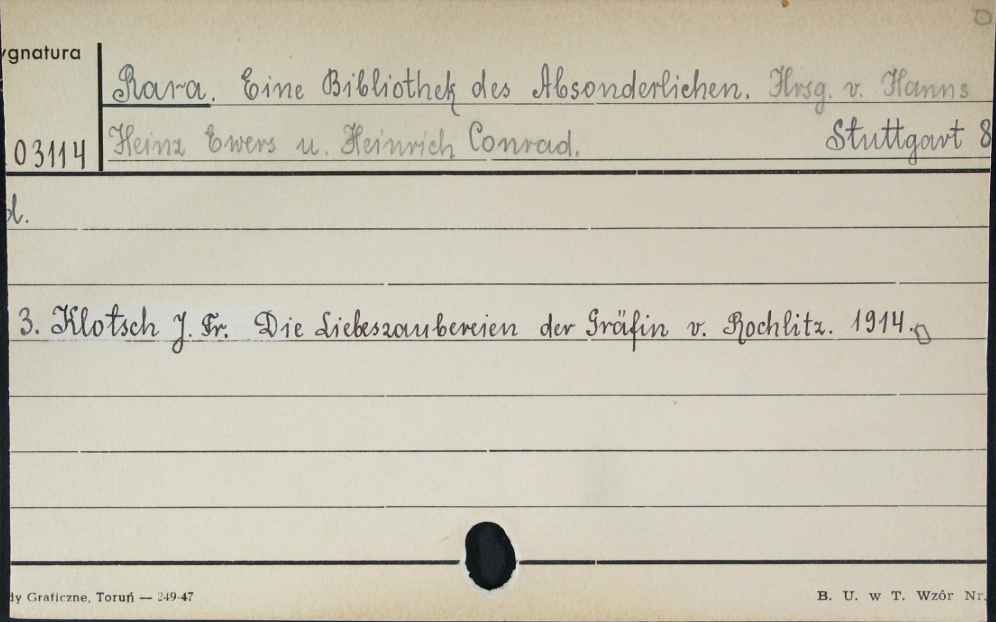 ygnatura
Rara. Eine Bibliothek des Absonderlichen. Hrsg. v. Hanns
03114 Heinz Ewers u. Heinrich Conrad. Stuttgart 8
d.
3. Klotsch J. Fr. Die Liebeszaubereien der Gräfin v. Rochlitz. 1914.
dy Graficzne, Toruń — 249-47 B. U. w T. Wzór Nr.